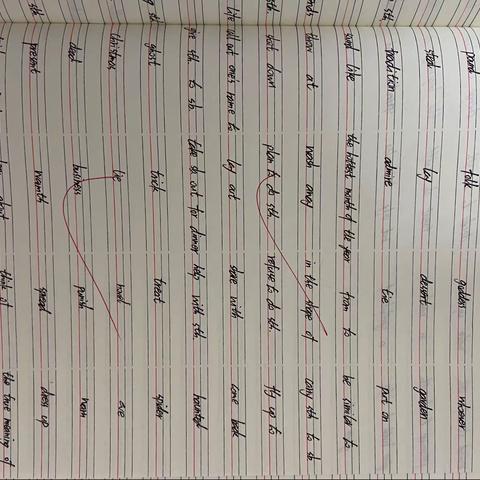 pound folk goddess whoever
steal lay dessert garden
tradition admire tie put on
sound like the hottest month of the year from to be similar to
throw at wash away in the shape of carry sth to sb
sth. shoot down plan to do sth. refuse to do sth. fly up to
call out one's name to lay out share with come back
give sth to sb take sb out for dinner help with sth. haunted
ghost trick treat spider
Christmas lie novel eve
dead business punish warn
sth. present warmth spread dress up
about think of the true meaning of